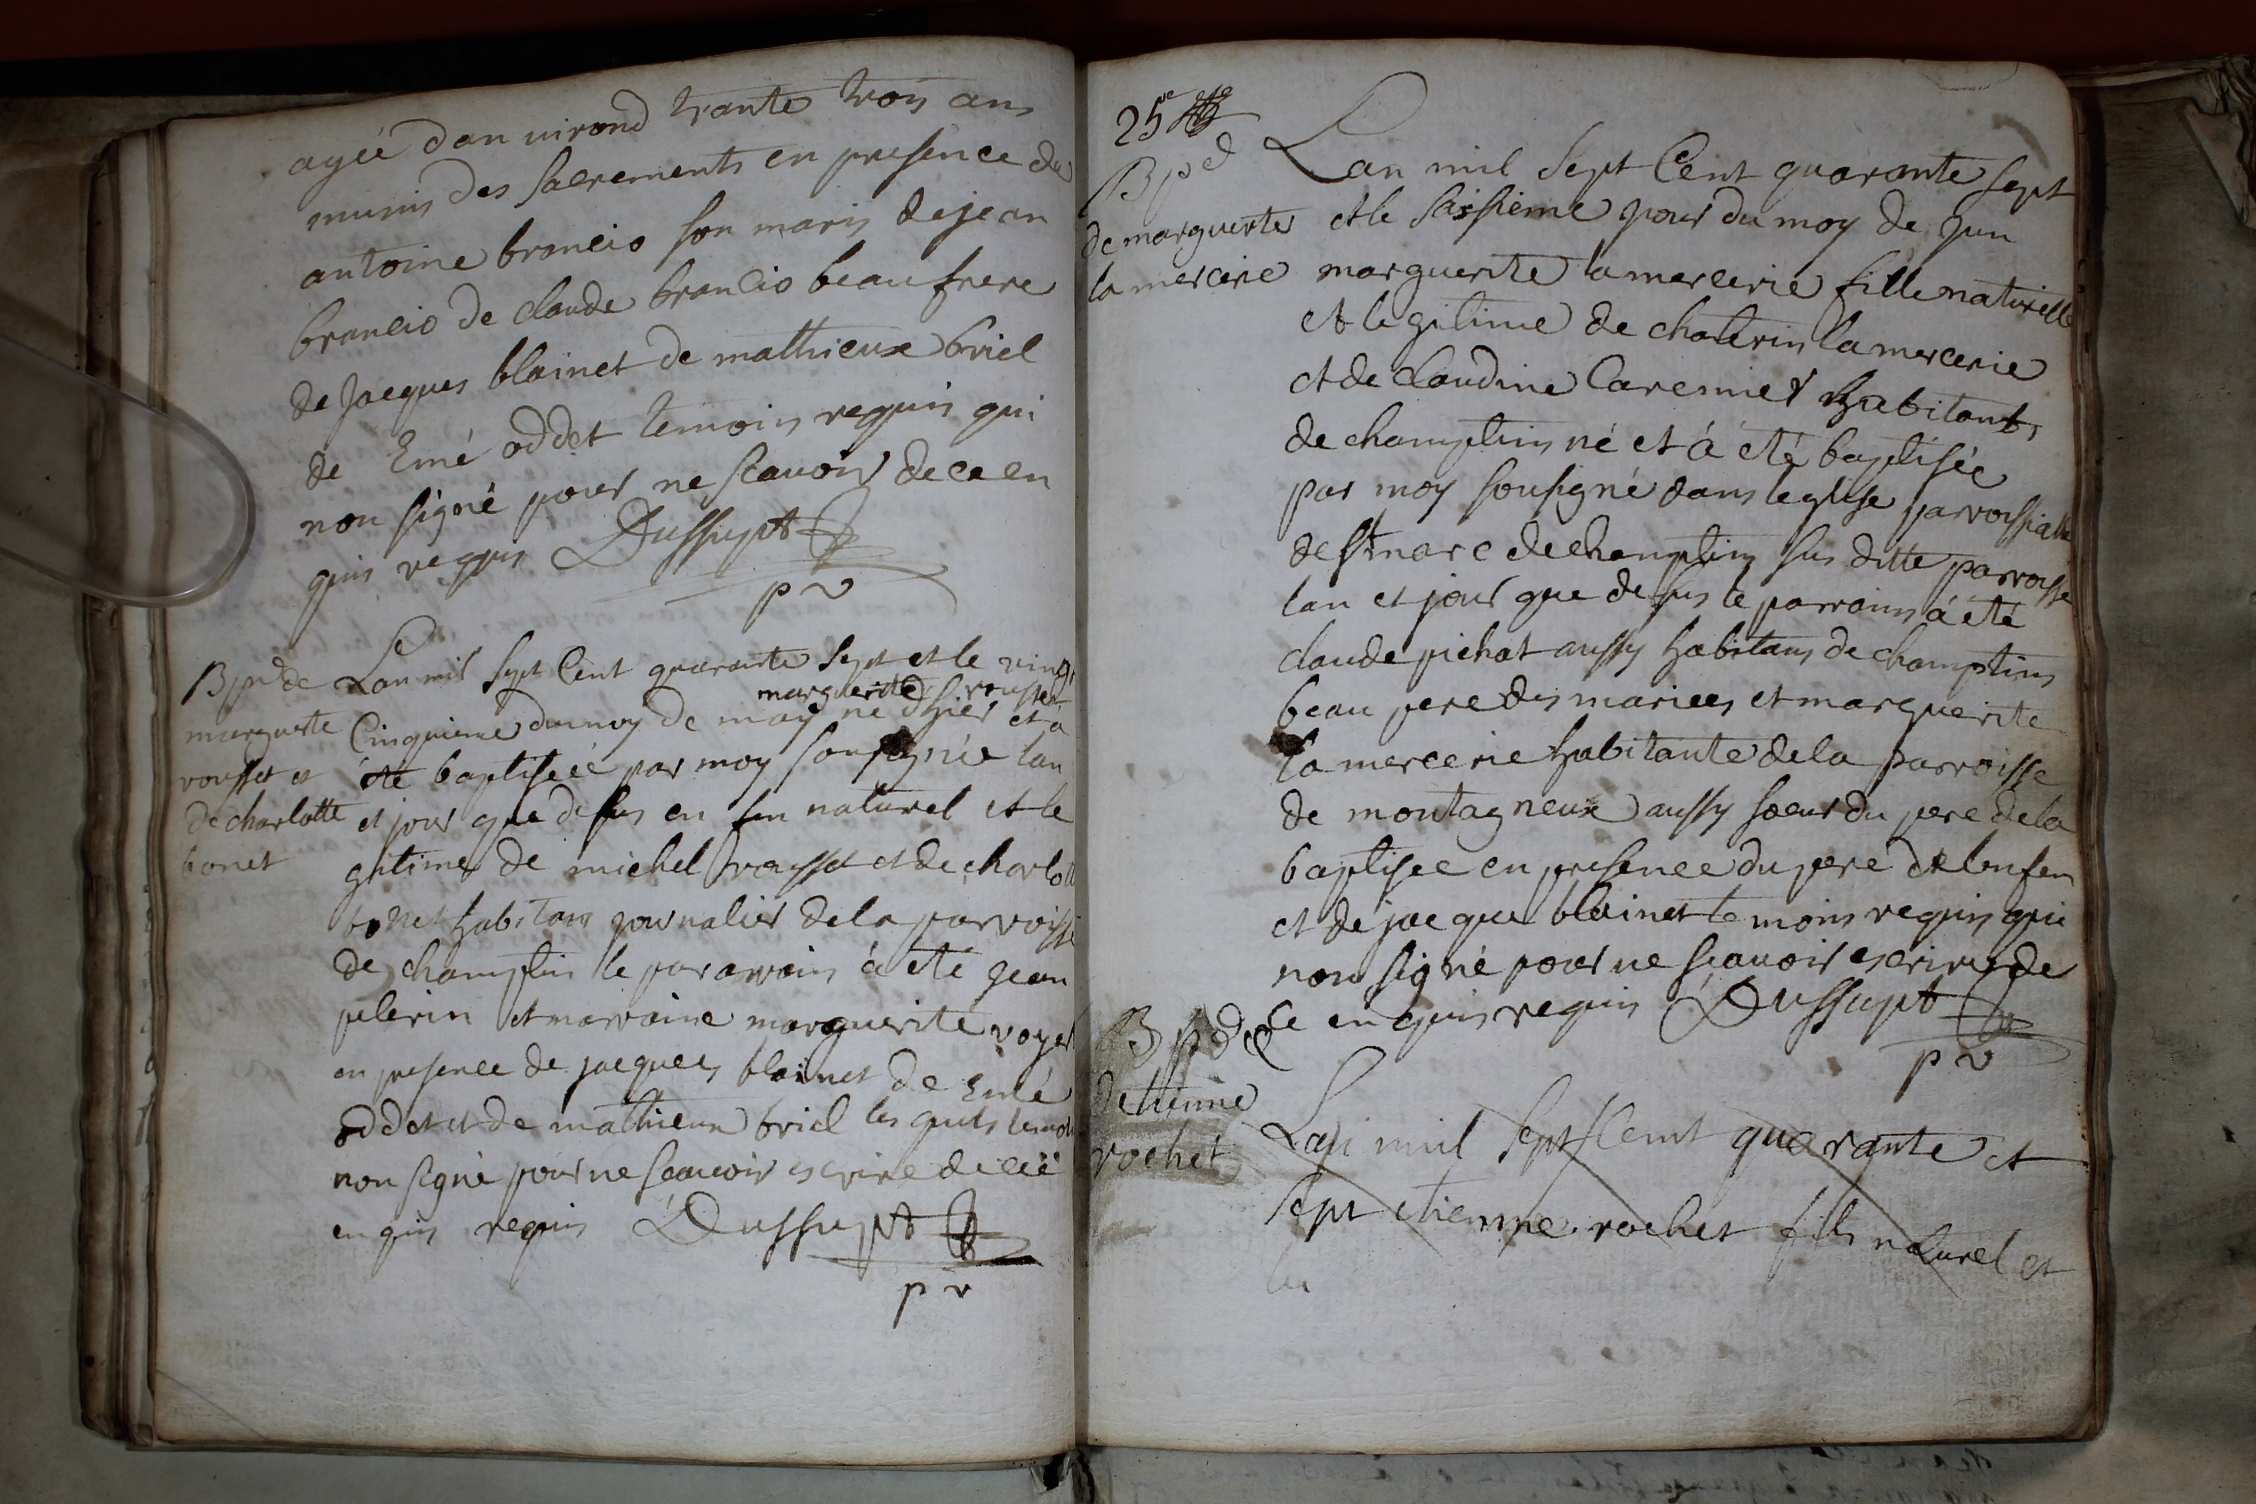 agée dan uirond trante trois ans
munis des sacrements en presence de
antoine brancio son maris de jean
brancio de claude brancio beau frere
de jacques blainet de mathieux briel
de Emé oddet temoin requis qui
non signé pour ne scauoir de ce en
quis requis Dussupt
p v
Bpd de
marguerite
rousset et
de charlotte
bonet
Lan mil sept Cent quarante sept et le vingt
marguerite rousset
Cinquieme du moy de may né dhier et a
été baptiseé par moy sousignée lan
et jour que desus en fan naturel et le
gitime de michel rousset et de charlott
bonet habitans journalier de la parroisse
de champtin le pararrain á eté jean
pelerin et marraine marguerite voyer
en presence de jacques blainet de Emé
oddet et de mathieux briel les quels temoin
non signé pour ne scauoir escrire de ceë
en quis requis Dussupt
p v
25e
Bpd
de marguerite
la mercerie
Lan mil sept Cent quarante sept
et le saisieme jour du moy de juin
marguerite la mercerie fille naturelle
et legitime de chaterin la mercerie
et de claudine Caremier habitants
de champtin né et á eté baptisée
par moy sousigné dans leglise parroissialle
de st marc de champtin sus ditte parroisse
lan et jour que desus le parrains á eté
claude pichat aussy habitans de champtins
beau pere des mariees et marguerite
la mercerie habitante de la parroisse
de montagneux aussy soeur du pere de la
baptisee en presence du pere de lenfan
et de jacque blainet temoins requis qui
non signé pour ne scauoir escrire de
ce en quis requis Dussupt
p v
Bpd
detienne
rochet
Lan mil sept Cent quarante et
sept etienne rochet fils naturel et